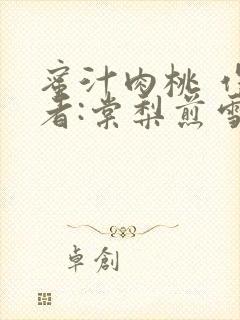 蜜汁肉桃 作
者:棠梨煎雪
卓创